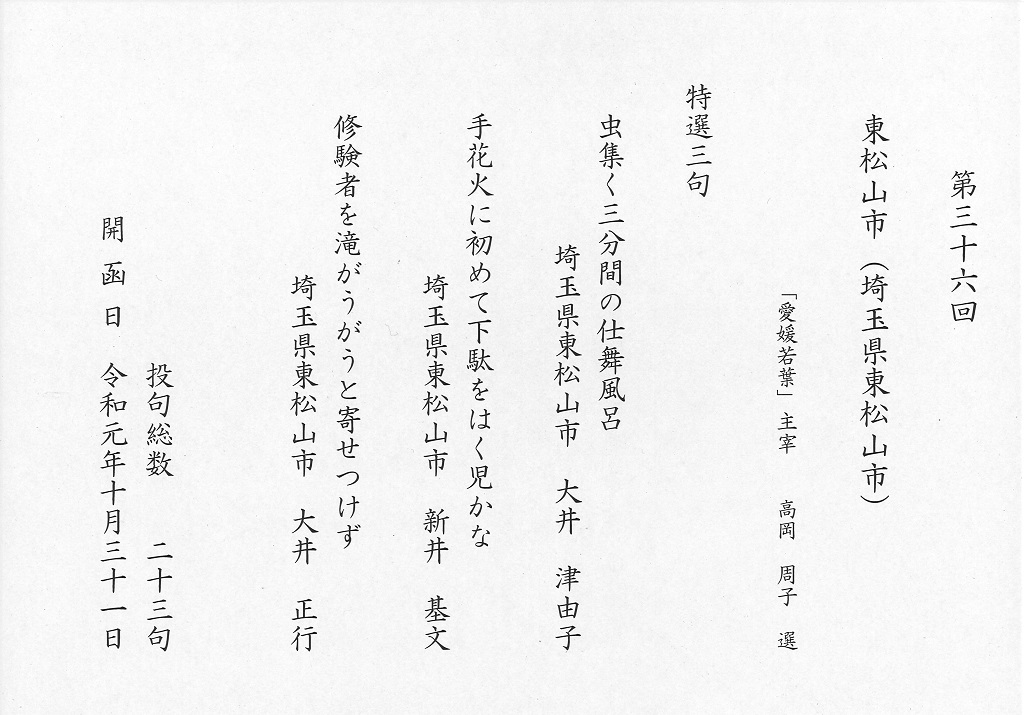 第三十六回
東松山市（埼玉県東松山市）
「愛媛若葉」主宰　高岡　周子　選
特選三句
虫集く三分間の仕舞風呂
埼玉県東松山市　大井　津由子
手花火に初めて下駄をはく児かな
埼玉県東松山市　新井　基文
修験者を滝がうがうと寄せつけず
埼玉県東松山市　大井　正行
投句総数　二十三句
開函日　令和元年十月三十一日